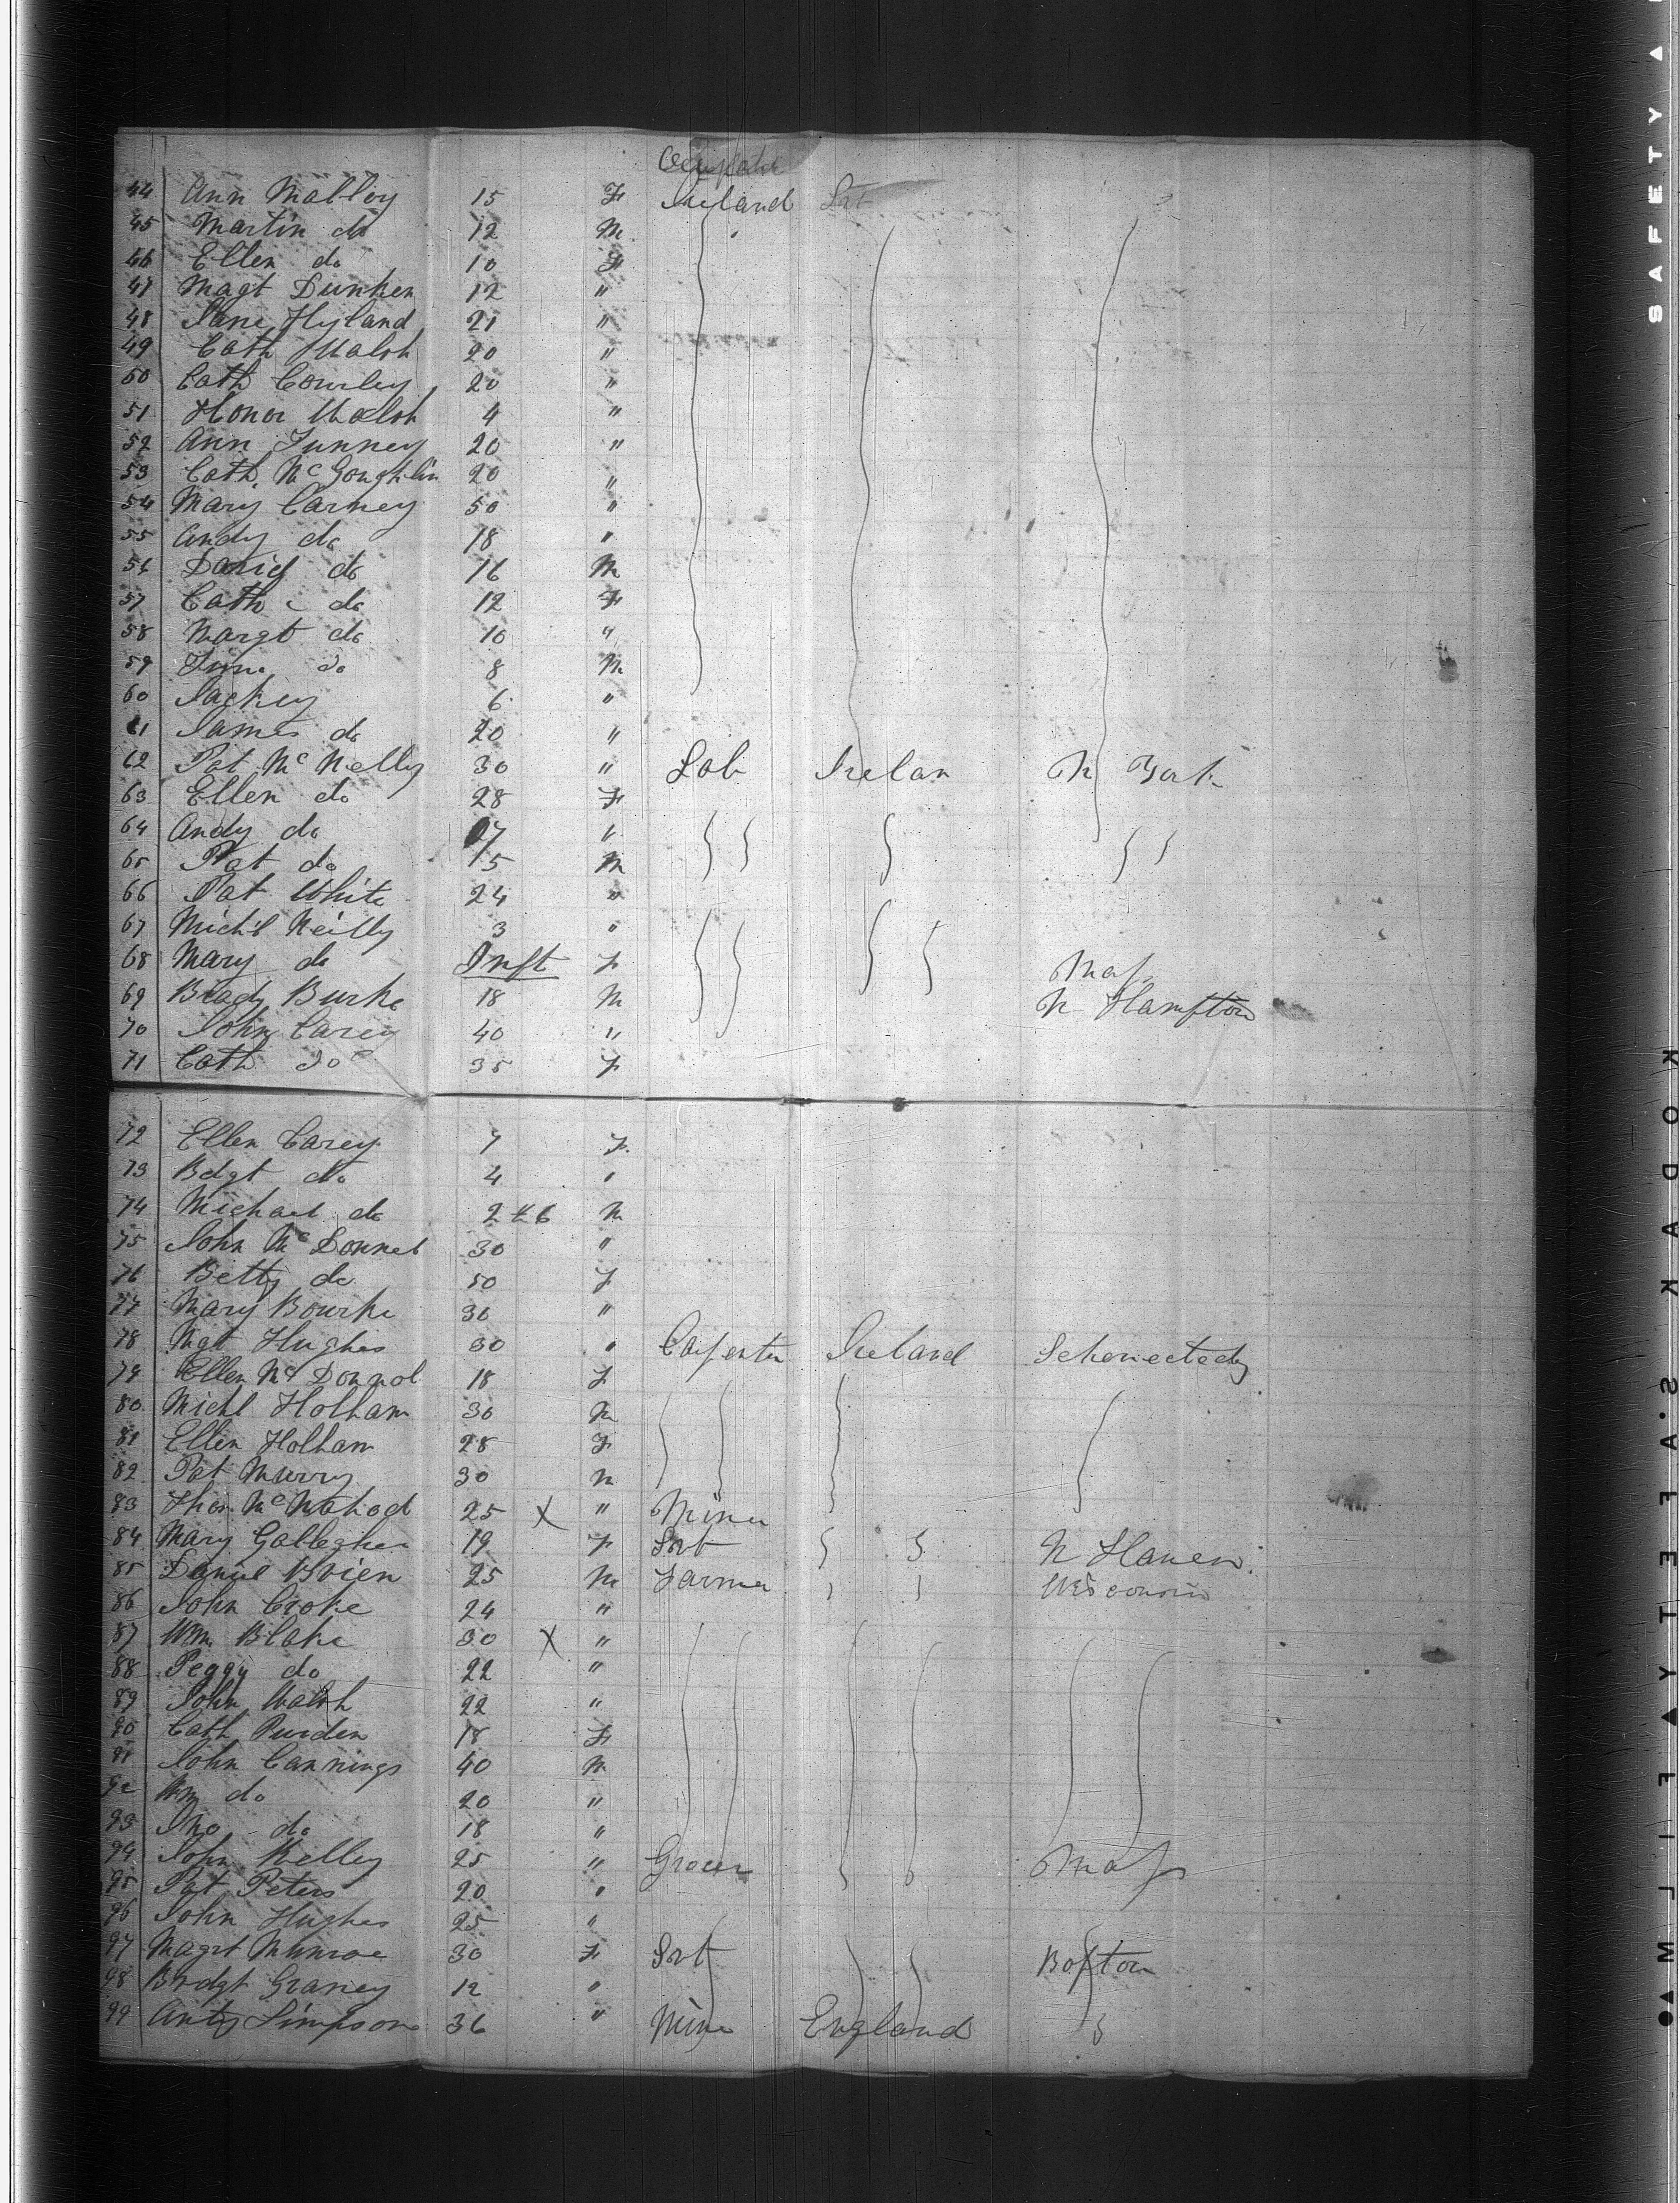 Occupation
44 Ann Malloy 15 F Ireland Srt
45 Martin do 12 M
46 Ellen do 10 F
47 Magt Dunken 12 "
48 Jane Hyland 21 "
49 Cath Walsh 20 "
50 Cath Courley 20 "
51 Honor Walsh 4 "
52 Ann Funney 20 "
53 Cath Mc Goughlin 20 "
54 Mary Carney 50 "
55 Andy do 18 "
56 do 16 M
57 Cath do 12 F
58 Margt do 10 "
59 do 8 M
60 Jackey 6 "
61 James do 20 "
62 Pat Mc Nelly 30 " Lab Irelan N York
63 Ellen do 28 F
64 Andy do 17 "
65 Pat do 15 M
66 Pat White 24 "
67 Mich'l Neilly 3 "
68 Mary do Inft F Mass
69 Brady Burke 18 M N Hampton
70 John Carey 40 "
71 Cath do 35 F
72 Ellen Carey 7 F
73 Bdgt do 4 "
74 Michael do 2 & 6 M
75 John Mc Donnel 30 "
76 Betty do 50 F
77 Mary Bourke 30 "
78 Mgt Hughes 30 " Carpenter Ireland Schenectedy
79 Ellen Mc Donnol 18 F
80 Michl Holham 30 M
81 Ellen Holham 28 F
82 Pat Murry 30 M
83 Thos Mc 25 X " Miner
84 Mary Gallegher 19 F Srt N Haven
85 Daniel Brien 25 M Farmer Wisconsin
86 John Croke 24 "
87 Wm. Blake 30 X "
88 Peggy do 22 "
89 John Walsh 22 "
90 Cath Purden 18 F
91 John Cannings 40 M
92 Wm do 20 "
93 Jno do 18 "
94 John Kelley 25 " Grocer Mass
95 Pat Peters 20 "
96 John Hughes 25 "
97 Magrt Munroe 30 F Srt Boston
98 Brdgt Graney 12 "
99 Anty Simpson 36 " Mine England
SAFETY
KODAK
SAFETY
FILM